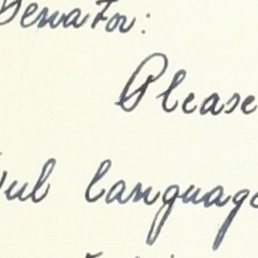 Senator:
Please
ful language